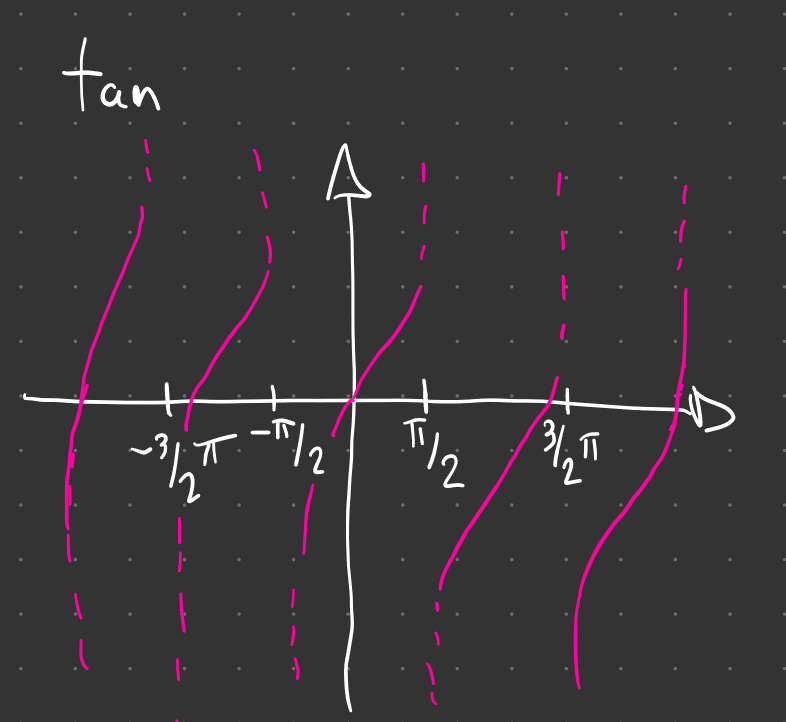 tan
-3/2 π
-π/2
π/2
3/2 π